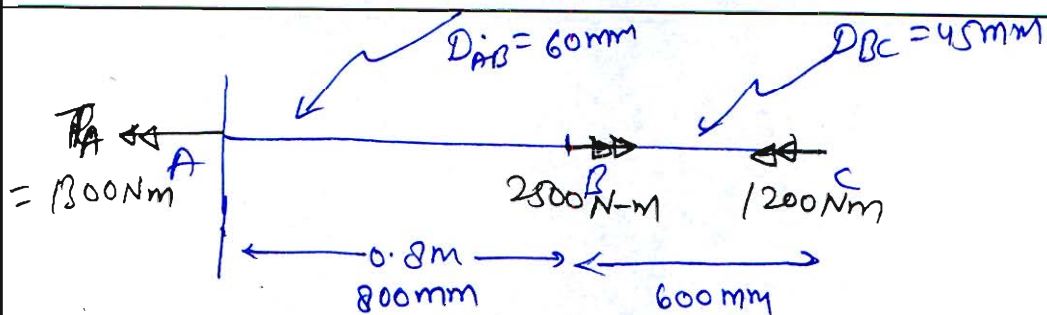 D_AB = 60mm
D_BC = 45mm
T_A
A
= 1300Nm
B
2500 N-m
C
1200Nm
0.8m
800mm
600mm